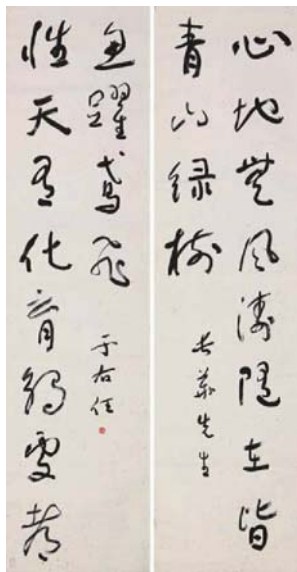 心地無風濤隨在皆
青山綠樹
先生
性天有化育觸處都
魚躍鳶飛
于右任